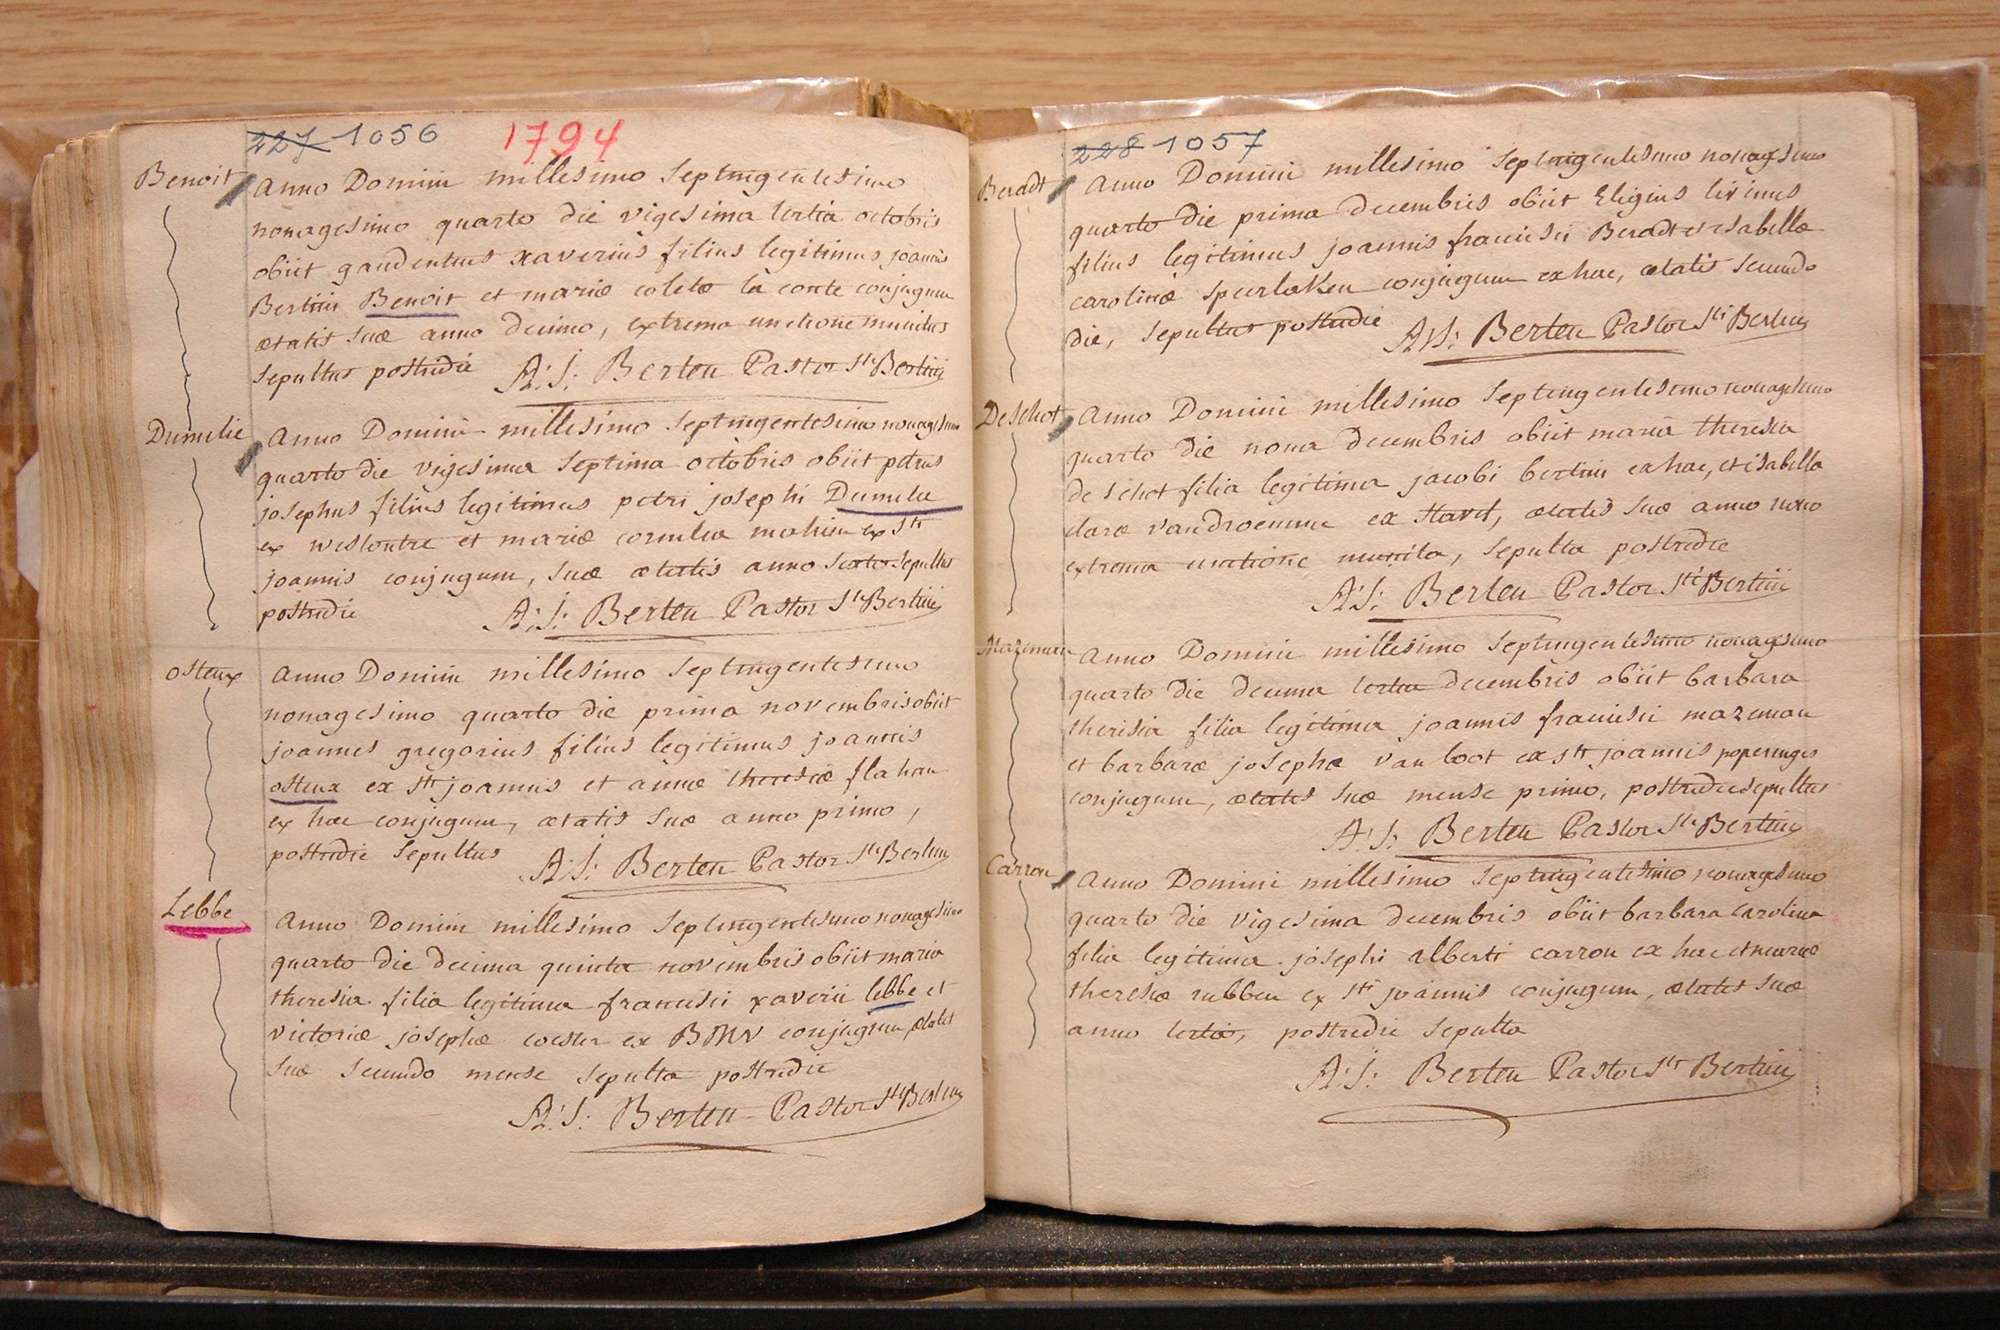 227 1056 1794
Benoit Anno Domini millesimo Septingentesimo
nonagesimo quarto die vigesima tertia octobris
obiit gaudentius xaverius filius legitimus joannis
Bertini Benoit et mariæ coletæ la conte conjugum
ætatis suæ anno decimo, extrema unctione munitus
sepultus postridie A: J: Berten Pastor Sti Bertini
Dumelie Anno Domini millesimo Septingentesimo nonagesimo
quarto die vigesima Septima octobris obiit petrus
josephus filius legitimus petri josephi Dumelie
ex westoutre et mariæ cornelia mahieu ex Sti
joannis conjugum, suæ ætatis anno sexto sepultus
postridie A: J: Berten Pastor Sti Bertini
osteux Anno Domini millesimo Septingentesimo
nonagesimo quarto die prima novembris obiit
joannes gregorius filius legitimus joannis
osteux ex Sti joannis et annæ theresiæ flahau
ex hac conjugum, ætatis suæ anno primo,
postridie Sepultus A: J: Berten Pastor Sti Bertini
Lebbe Anno Domini millesimo Septingentesimo nonagesimo
quarto die decima quinta novembris obiit maria
theresia filia legitima francisci xaverii lebbe et
victoriæ josephæ coester ex BMV conjugum, ætatis
suæ secundo mense sepulta postridie
A: J: Berten Pastor Sti Bertini
228 1057
Beradt Anno Domini millesimo Septuagentesimo nonagesimo
quarto die prima decembris obiit Eligius livinus
filius legitimus joannis francisci Beradt et isabellæ
carolinæ speerlaken conjugum ex hac, ætatis secundo
die, sepultus postridie A: J: Berten Pastor Sti Bertini
De Schot Anno Domini millesimo Septingentesimo nonagesimo
quarto die nona decembris obiit maria theresia
de schot filia legitima jacobi bertini ex hac, et isabella
claræ vandroemme ex Stavel, ætatis suæ anno nono
extrema unctione munita, sepulta postridie
A: J: Berten Pastor Sti Bertini
Mazeman Anno Domini millesimo Septingentesimo nonagesimo
quarto die decima tertia decembris obiit barbara
theresia filia legitima joannis francisci mazeman
et barbaræ josephæ van loot ex Sti joannis poperinges
conjugum, ætatis suæ mense primo, postridie sepultus
A: J: Berten Pastor Sti Bertini
Carron Anno Domini millesimo Septingentesimo nonagesimo
quarto die vigesima decembris obiit barbara carolina
filia legitima josephi alberti carron ex hac et mariæ
theresiæ rubben ex Sti joannis conjugum, ætatis suæ
anno tertio, postridie sepulta
A: J: Berten Pastor Sti Bertini